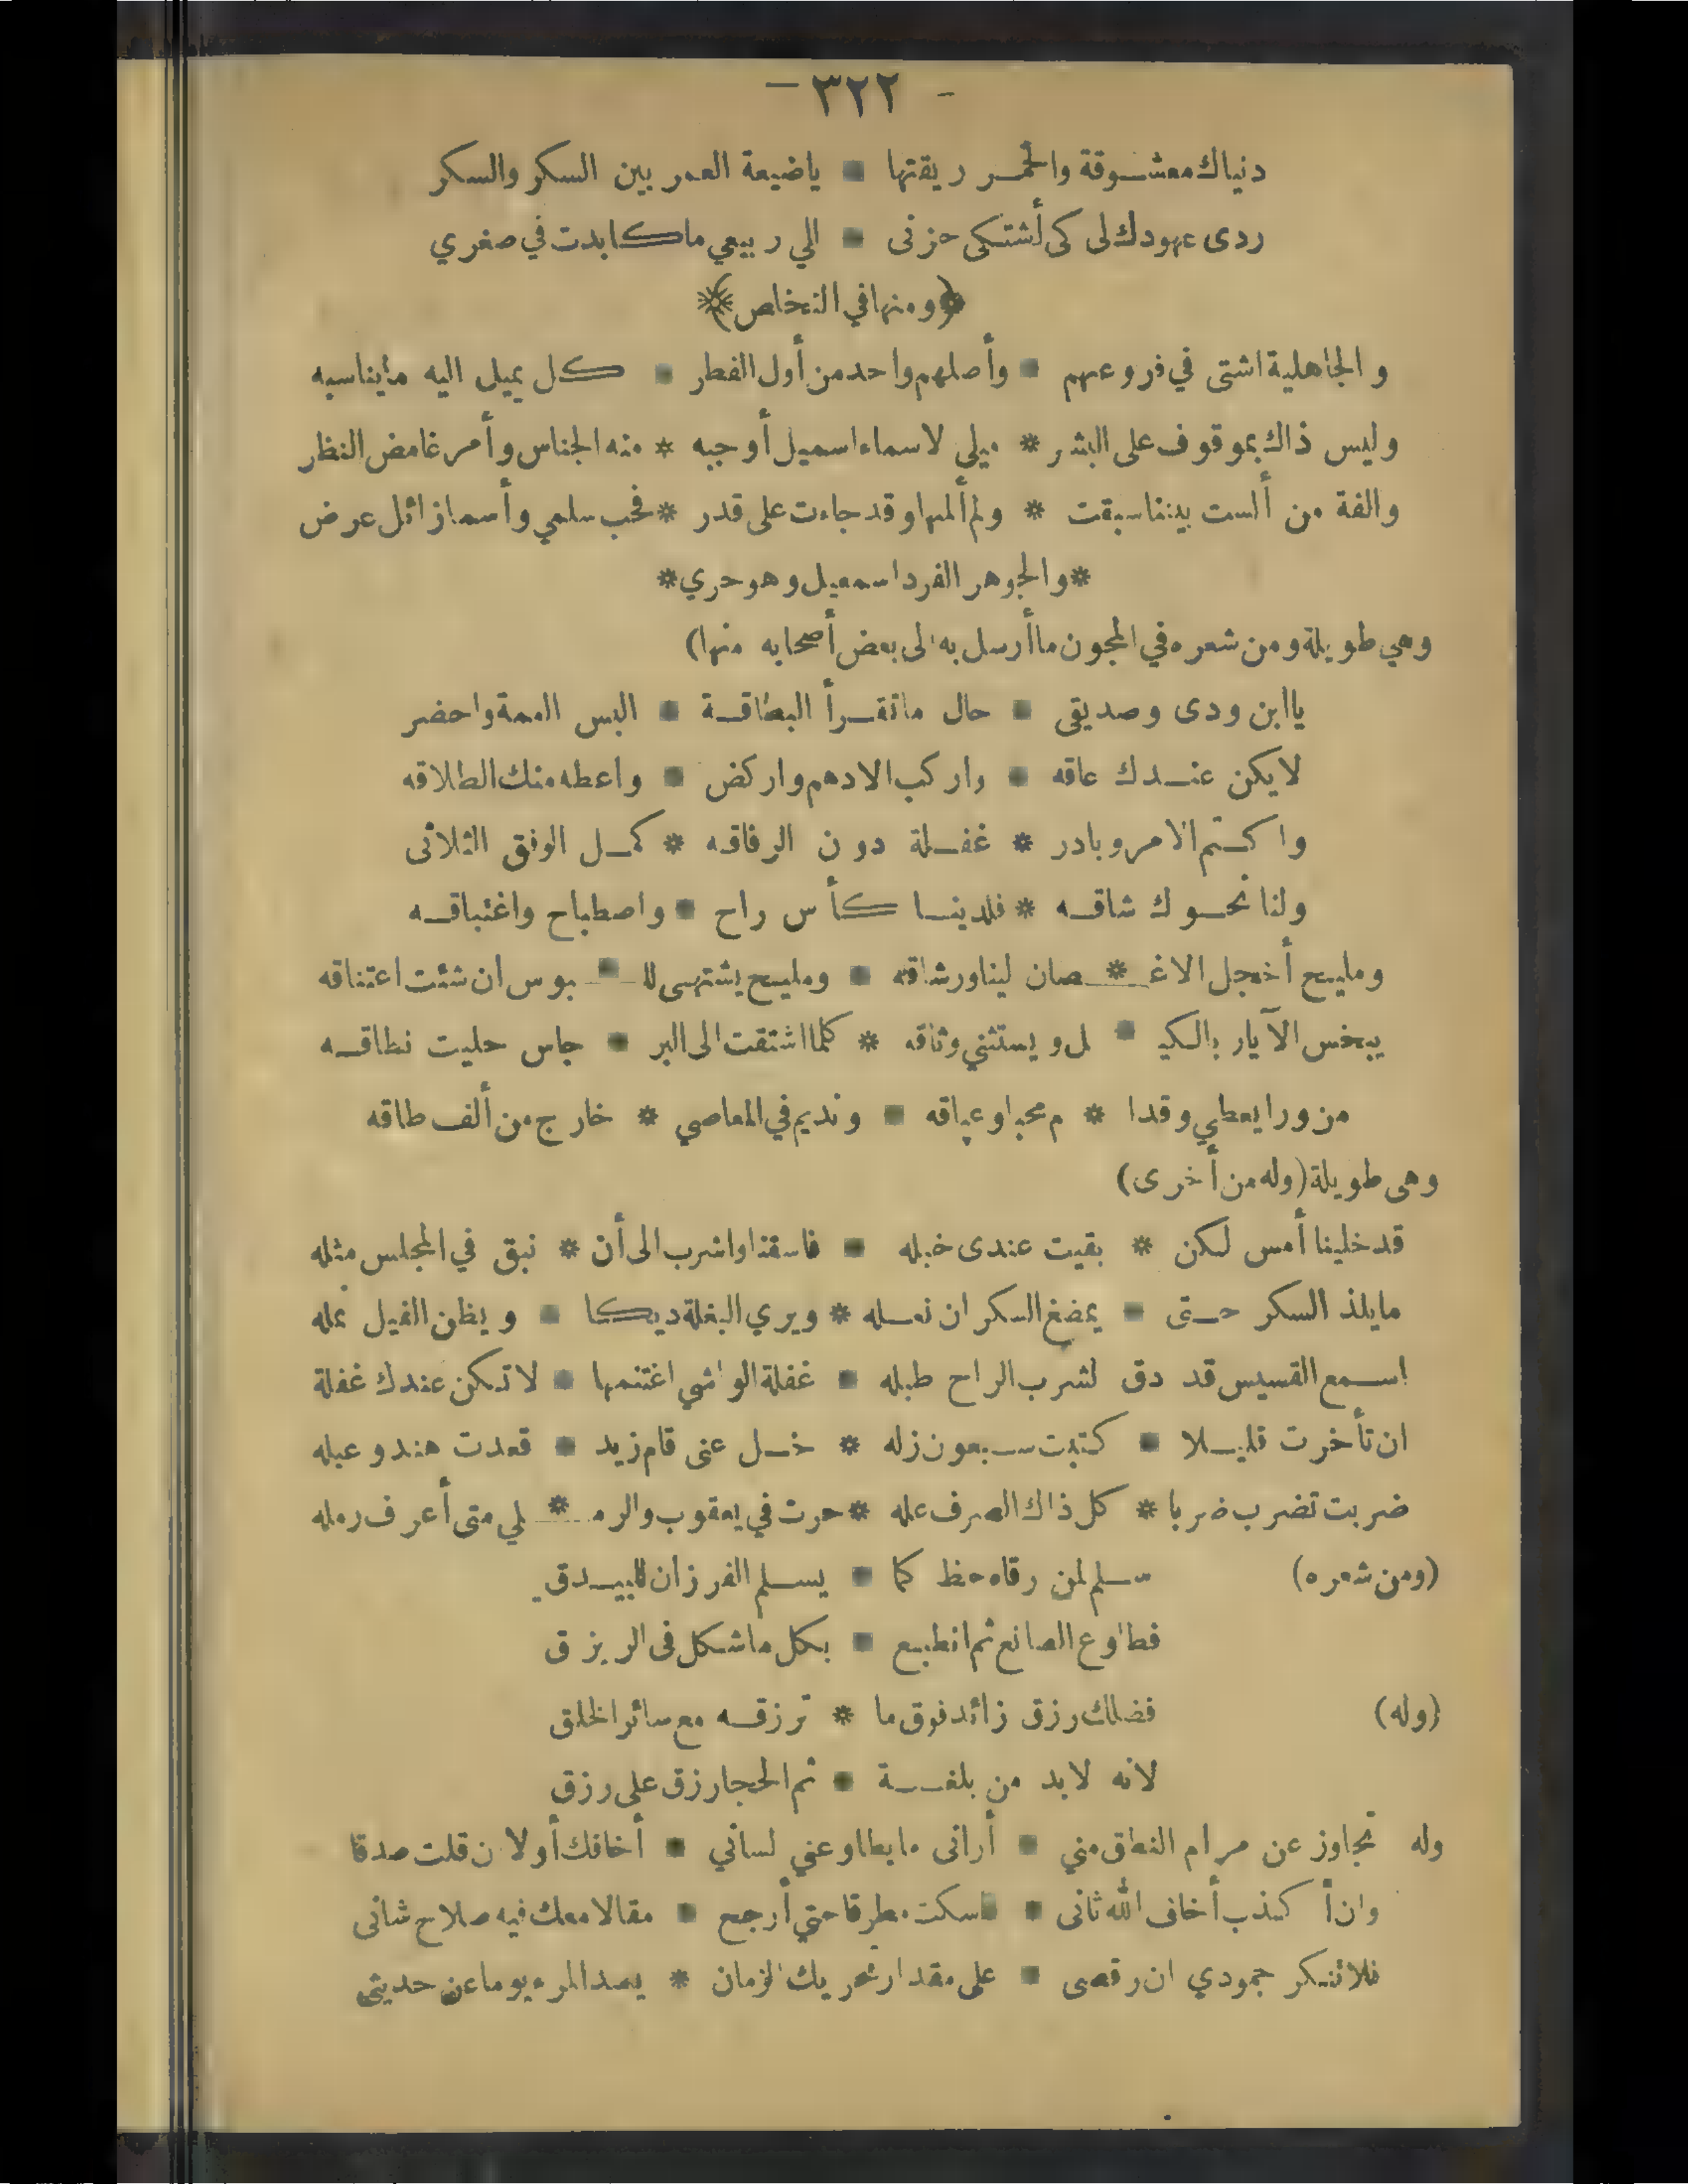 - ٣٢٢ -
دنياك معشوقة والخمر ريقتها * ياضيعة العمر بين السكر والسكر
ردى عهودك لى كى أشتكى حزنى * الي ربيعي ما كابدت في صغري
﴿ومنها في التخلص﴾
والجاهلية اشتى في فروعهم * وأصلهم واحد من أول الفطر * كل يميل اليه مايناسبه
وليس ذاك بموقوف على البشر * ميلى لاسماء اسميل أوجبه * منه الجناس وأمر غامض النظر
والفة من ألست بيننا سبقت * ولم ألمها وقد جاءت على قدر * فحب سلمي وأسما زائل عرض
* والجوهر الفرد اسمعيل وهو حري *
وهي طويلة ومن شعره في المجون ما أرسل به الى بعض أصحابه منها)
ياابن ودى وصديقى * حال ماتقرأ البطاقة * البس العمة واحضر
لايكن عندك عاقه * واركب الادهم واركض * واعطه منك الطلاقه
واكتم الامر وبادر * غفلة دون الرفاقه * كمل الوفق الثلاثى
ولنا نحوك شاقه * فلدينا كأس راح * واصطباح واغتباقه
ومليح أخجل الاغ * صان لينا ورشاقه * ومليح يشتهى لل * بوس ان شئت اعتناقه
يبخس الآيار بالكي * ل ويستثني وثاقه * كلما اشتقت الى البر * جاس حليت نطاقه
من ورا يعطي وقدا * م محبا وعياقه * ونديم في المعاصي * خارج من ألف طاقه
وهى طويلة (وله من أخرى)
قد خلينا أمس لكن * بقيت عندى خبله * فاسقنا واشرب الى أن * نبق في المجلس مثله
مايلذ السكر حتى * يمضغ السكران نعله * ويري البغلة ديكا * ويظن الفيل نمله
اسمع القسيس قد دق لشرب الراح طبله * غفلة الواشي اغتنمها * لاتكن عندك غفلة
ان تأخرت قليلا * كتبت سبعون زله * خل عنى قام زيد * قعدت هند وعبله
ضربت تضرب ضربا * كل ذاك الصرف عله * حرت في يعقوب والرم * لي متى أعرف رمله
(ومن شعره) سلم لمن رقاه حظ كما * يسلم الفرزان للبيدق
فطاوع الصانع ثم انطبع * بكل ماشكل فى الريزق
(وله) فضلك رزق زائد فوق ما * ترزقه مع سائر الخلق
لانه لابد من بلغة * ثم الحجا رزق على رزق
وله تجاوز عن مرام النطق مني * أرانى مايطاوعني لساني * أخافك أولا ن قلت صدقا
وان أكذب أخاف الله ثانى * فاسكت مطرقا حتي أرجع * مقالا معك فيه صلاح شانى
فلاتنكر جمودي ان رقصى * على مقدار تحريك الزمان * يصد المرء يوما عن حديثى